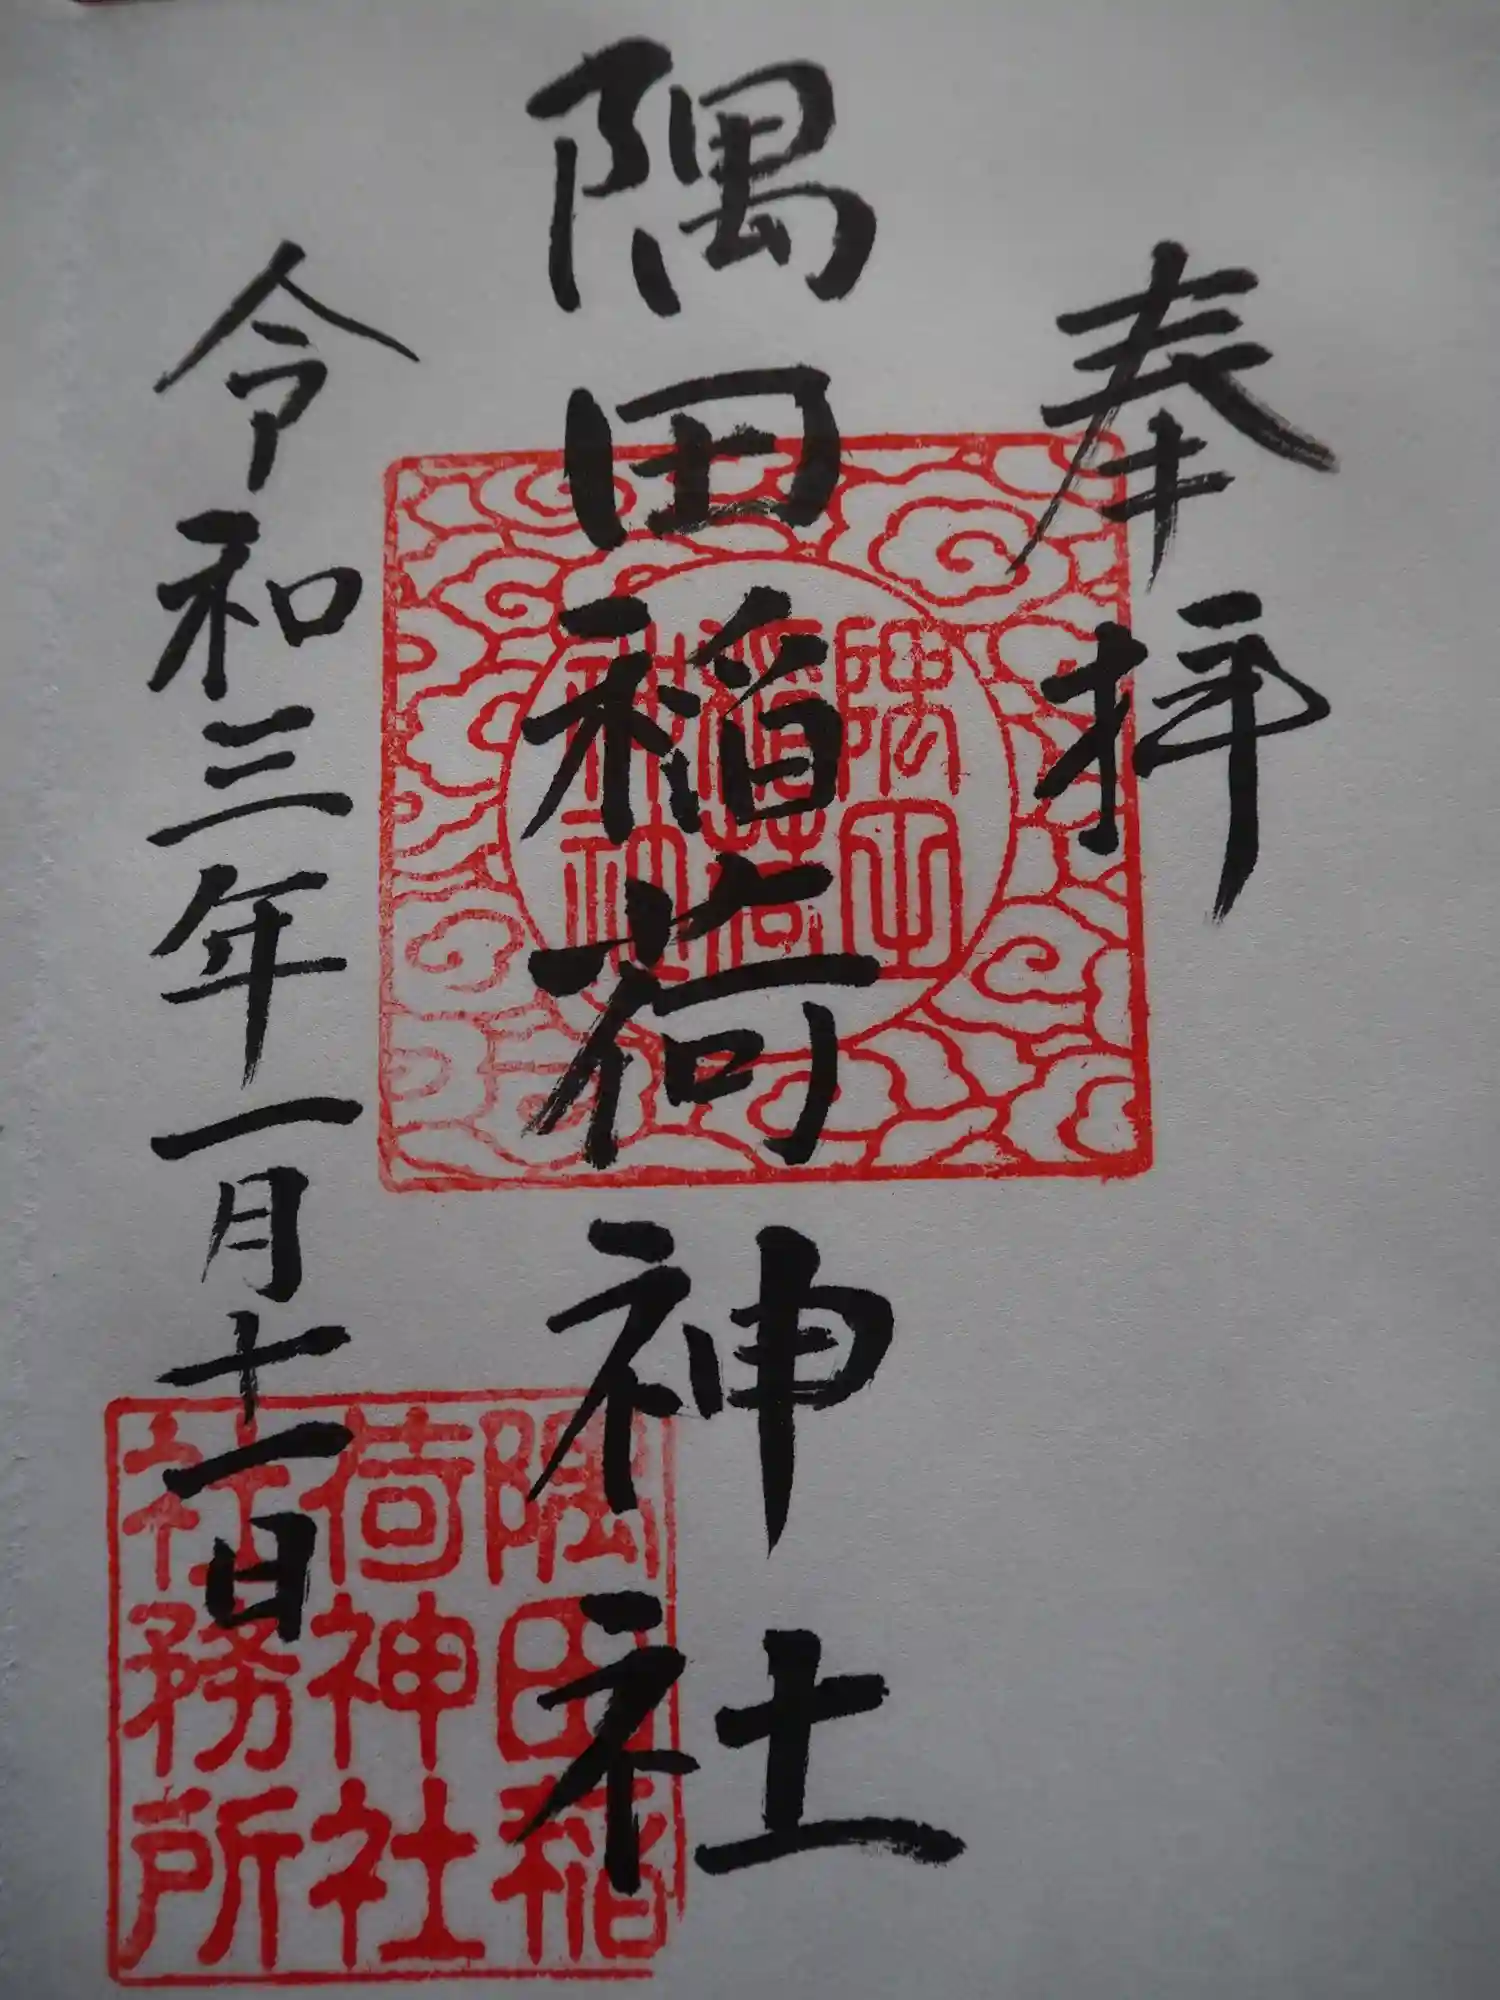 奉拝
隅田稲荷神社
令和三年一月十一日
隅田
稲荷
神社
隅田稲
荷神社
社務所